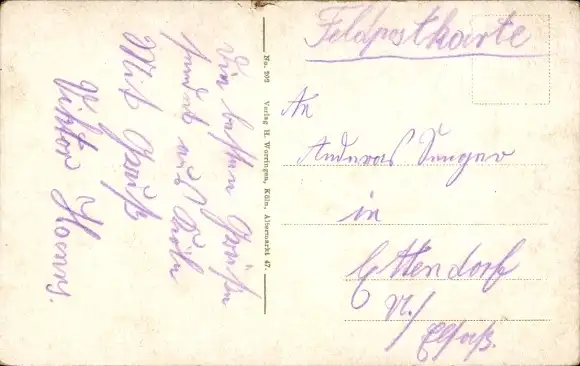 Feldpostkarte
An
Anderas Senger
in
Ettendorf
U./
Elsaß.
No. 202 Verlag H. Worringen, Köln, Altermarkt 47.
Die besten Grüße
sendet aus Köln
Mit Gruß
Viktor